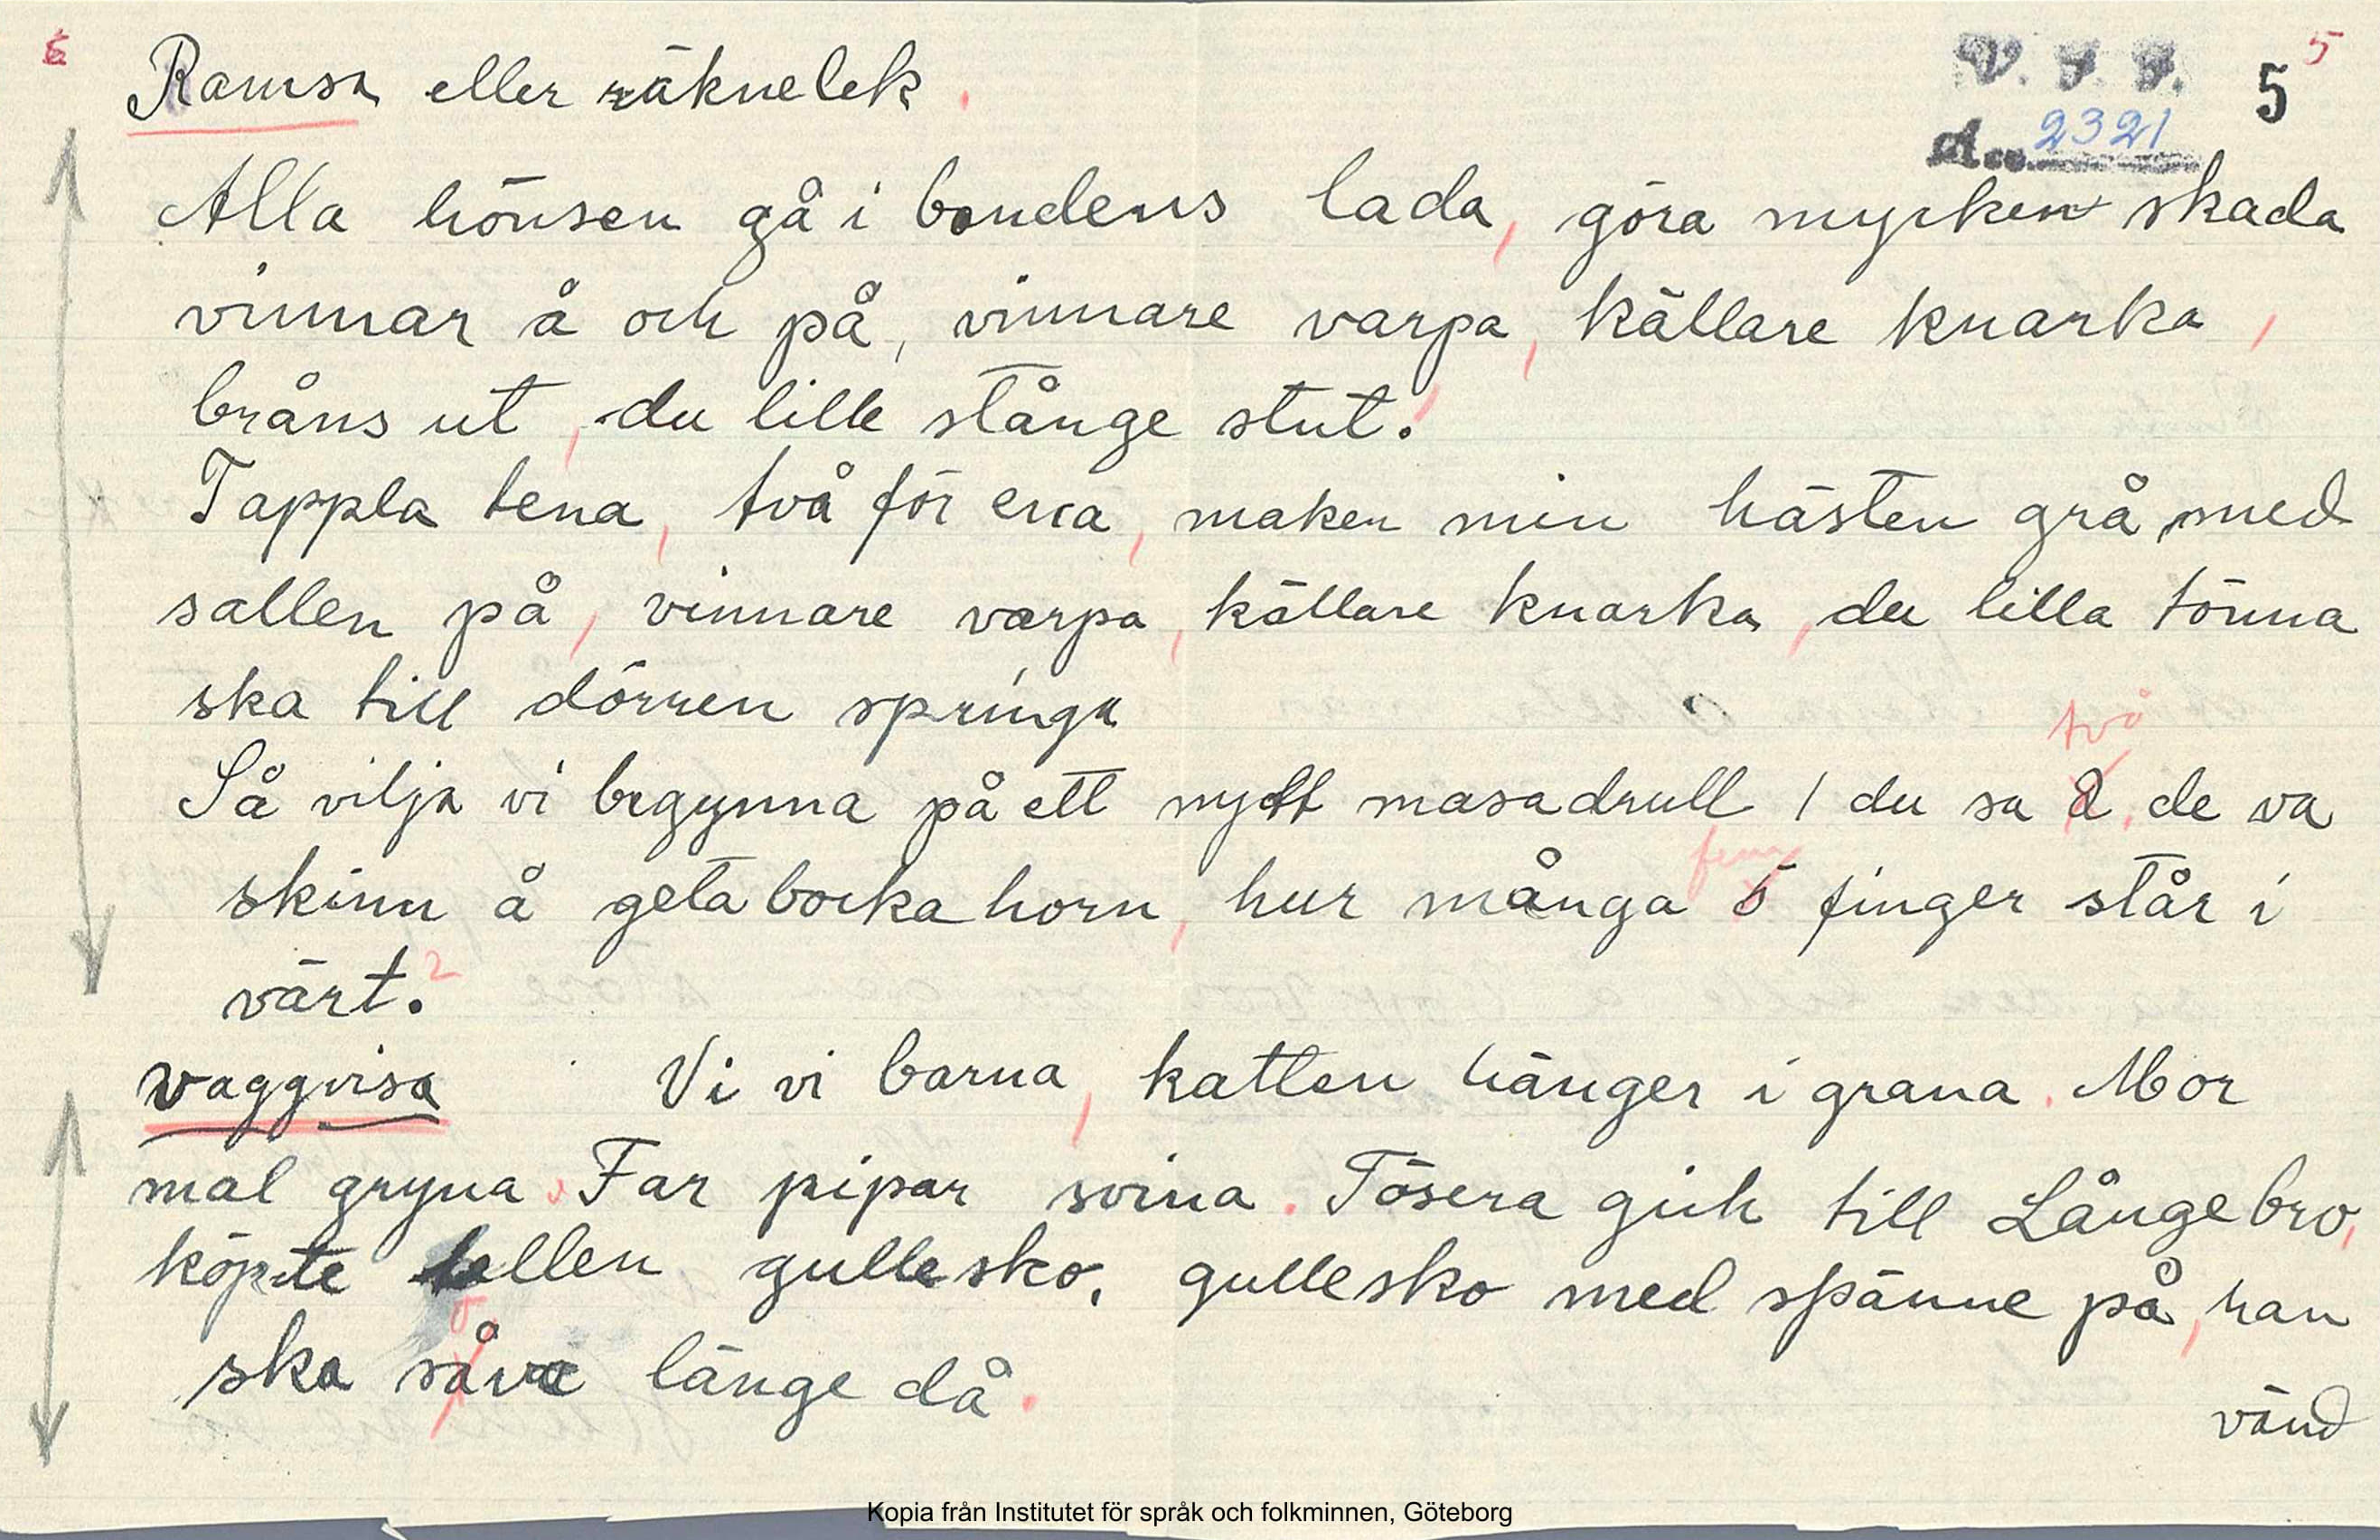 5
V. F. F.
5
5
Ramsa eller räknelek.
Acc. 2321
Alla hönsen gå i bondens lada, göra mycken skada
vinnar å och på, vinnare varpa, källare knarka,
bråns ut, du lille stånge stut!
Tappla tena, två för ena, maken min hästen grå, med
sallen på, vinnare varpa, källare knarka, du lilla tönna
ska till dörren springa
två
Så vilja vi begynna på ett nytt masadrull 1 du sa 2, de va
fem
skinn å getabocka horn, hur många 5 finger står i
värt?
vaggvisa Vi vi barna, katten hänger i grana. Mor
mal gryna. Far pipar svina. Tösera gick till Långebro,
köpte lellen gullesko, gullesko med spänne på, han
ska såva länge då.
vänd
Kopia från Institutet för språk och folkminnen, Göteborg